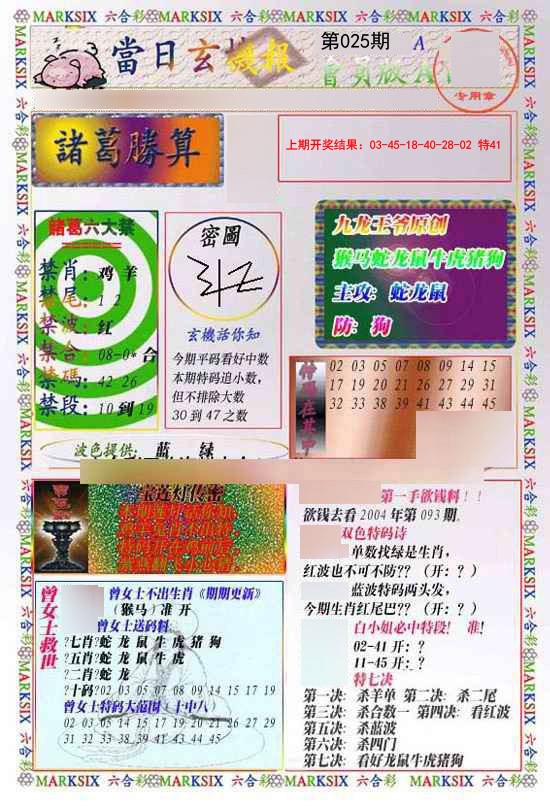 MARKSIX 六合彩 MARKSIX 六合彩 MARKSIX 六合彩 MARKSIX 六合彩 MARKSIX
當日玄機報
第025期 A
會員版A
专用章
諸葛勝算
上期开奖结果：03-45-18-40-28-02 特41
諸葛六大禁
禁肖：鸡 羊
禁尾：1 2
禁波：红
禁合：08-0* 合
禁碼：42 26
禁段：10到19
密圖
玄機話你知
今期平码看好中数
本期特码追小数，
但不排除大数
30 到 47 之数
九龙王爷原创
猴马蛇龙鼠牛虎猪狗
主攻：蛇龙鼠
防：狗
02 03 05 07 08 09 14 15
17 19 20 21 26 27 29 31
32 33 38 39 41 43 44 45
波色提供：蓝 绿
宝莲灯传密
曾女士救世
曾女士不出生肖《期期更新》
（猴马）准 开
曾女士送码料：
?七肖?蛇 龙 鼠 牛 虎 猪 狗
?五肖?蛇 龙 鼠 牛 虎
?二肖?蛇 龙
?十码?02 03 05 07 08 09 14 15 17 19
曾女士特码大范围（十中八）
02 03 05 14 15 17 19 20 21 26 27 29
31 32 33 38 39 41 43 44 45
第一手欲钱料！！
欲钱去看2004年第093期.
双色特码诗
单数找绿是生肖，
红波也不可不防??（开：？）
蓝波特码两头发，
今期生肖红尾巴??（开：？）
白小姐必中特段！ 准！
02-41 开：？
11-45 开：？
特七决
第一决：杀羊单 第二决：杀二尾
第三决：杀合数一 第四决：看红波
第五决：杀蓝波
第六决：杀四门
第七决：看好龙鼠牛虎猪狗
MARKSIX 六合彩 MARKSIX 六合彩 MARKSIX 六合彩 MARKSIX 六合彩 MARKSIX